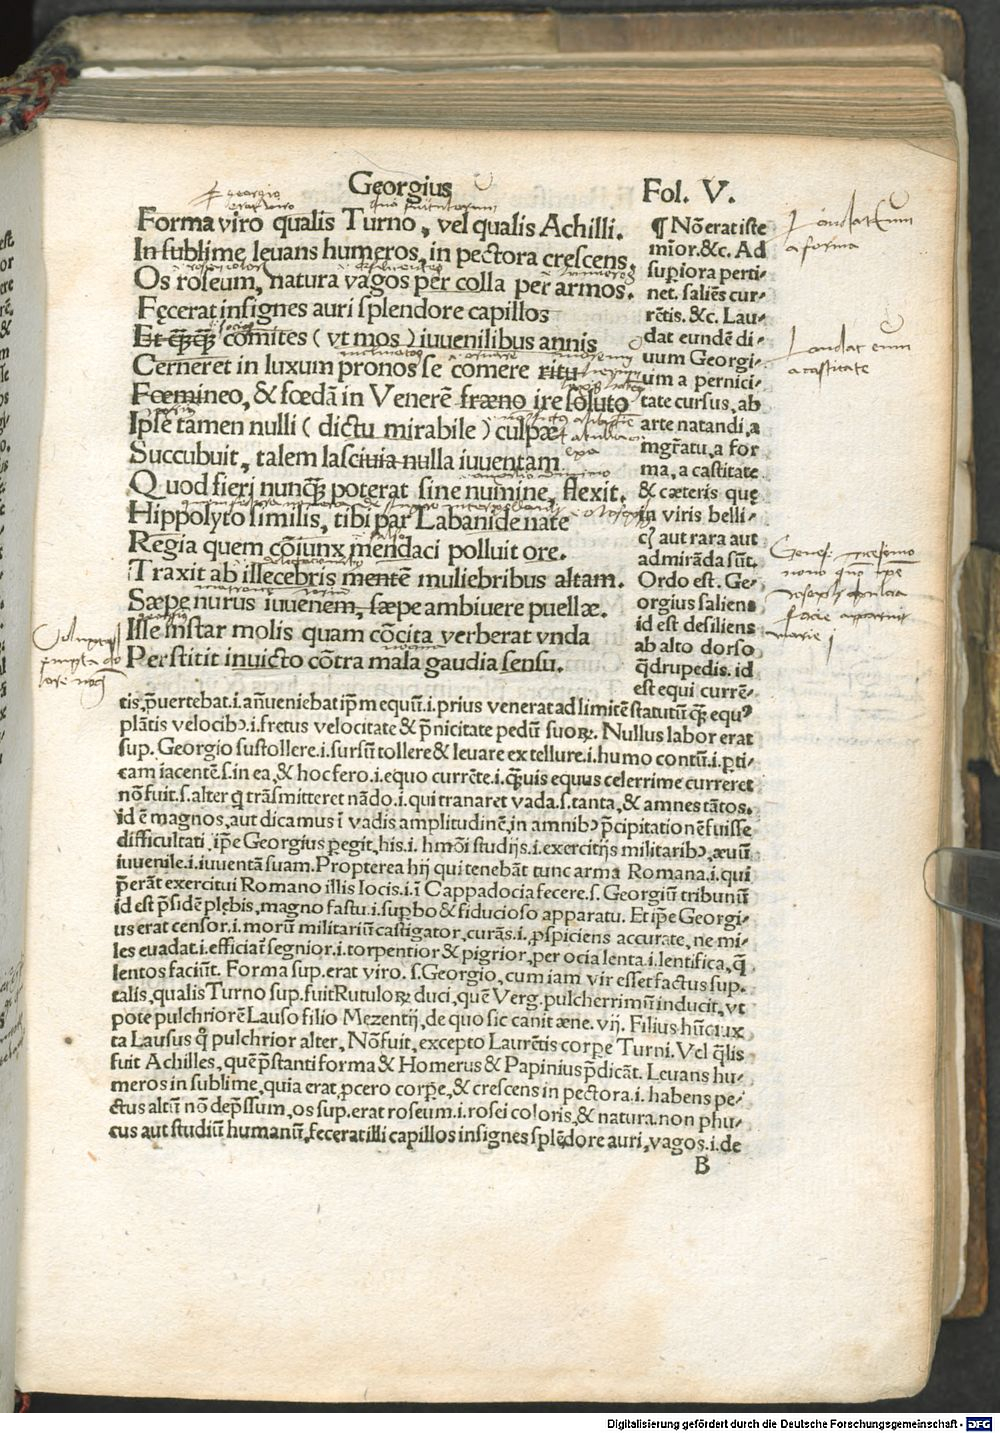 Georgius
Fol. V.
Forma viro qualis Turno, vel qualis Achilli.
In sublime leuans humeros, in pectora crescens.
Os roseum, natura vagos per colla per armos.
Fęcerat insignes auri splendore capillos
Et comites ( vt mos ) iuuenilibus annis
Cerneret in luxum pronos se comere ritu
Fœmineo, & fœda in Venerē fræno ire soluto
Ipse tamen nulli ( dictu mirabile ) culpæ
Succubuit, talem lasciuia nulla iuuentam
Quod fieri nunq̄ poterat sine numine, flexit.
Hippolyto similis, tibi par Labanide nate
Regia quem cōiunx mendaci polluit ore.
Traxit ab illecebris mentē muliebribus altam.
Sæpe nurus iuuenem, sæpe ambiuere puellæ.
Ille instar molis quam cōcita verberat vnda
Perstitit inuicto cōtra mala gaudia sensu.
¶ Nō erat iste
mīor.&c. Ad
supiora perti-
net. saliēs cur-
rētis. &c. Lau-
dat eundē di-
uum Georgi-
um a pernici-
tate cursus, ab
arte natandi, a
mgr̄atu, a for
ma, a castitate
& cæteris quę
in viris belli-
cꝭ aut rara aut
admirāda sūt.
Ordo est. Ge-
orgius saliens
id est desiliens
ab alto dorso
q̄drupedis. id
est equi currē-
tis, p̄uertebat.i. an̄ueniebat ip̄m equū.i. prius venerat ad limitē statutū q̄ equꝰ
plātis velocibꝰ.i. fretus velocitate & p̄nicitate pedū suoꝝ. Nullus labor erat
sup. Georgio sustollere.i. sursū tollere & leuare ex tellure.i. humo contū.i. ꝑti-
cam iacentē.s. in ea, & hoc fero.i. equo currēte.i. q̄uis equus celerrime curreret
nō fuit.s. alter q̄ trāsmitteret nādo.i. qui tranaret vada.s. tanta, & amnes tātos.
id ē magnos, aut dicamus ī vadis amplitudinē, in amnibꝰ p̄cipitationē fuisse
difficultati, ip̄e Georgius ꝑegit, his.i. hmōi studijs.i. exercitijs militaribꝰ, æuū
iuuenile.i. iuuentā suam. Propterea hij qui tenebāt tunc arma Romana.i. qui
p̄erāt exercitui Romano illis locis.i. ī Cappadocia fecere.s. Georgiū tribunū
id est p̄sidē plębis, magno fastu.i. supbo & fiducioso apparatu. Et ip̄e Georgi-
us erat censor.i. morū militariū castigator, curās.i. ꝓspiciens accurate, ne mi-
les euadat.i. efficiat̄ segnior.i. torpentior & pigrior, per ocia lenta.i. lentifica, q̄
lentos faciūt. Forma sup. erat viro.s. Georgio, cum iam vir esset factus sup.
talis, qualis Turno sup. fuit Rutuloꝝ duci, quē Verg. pulcherrimū inducit, vt
pote pulchriorē Lauso filio Mezentij, de quo sic canit æne. vij. Filius huic iux
ta Lausus q̊ pulchrior alter, Nō fuit, excepto Laurētis corꝑe Turni. Vel q̄lis
fuit Achilles, quē p̄stanti forma & Homerus & Papinius p̄dicāt. Leuans hu-
meros in sublime, quia erat ꝓcero corꝑe, & crescens in pectora.i. habens pe-
ctus altū nō dep̄ssum, os sup. erat roseum.i. rosei coloris, & natura non phu-
cus aut studiū humanū, feceratilli capillos insignes splēdore auri, vagos.i. de
B
Laudat eum
a forma
Laudat eum
a castitate
Digitalisierung gefördert durch die Deutsche Forschungsgemeinschaft - DFG